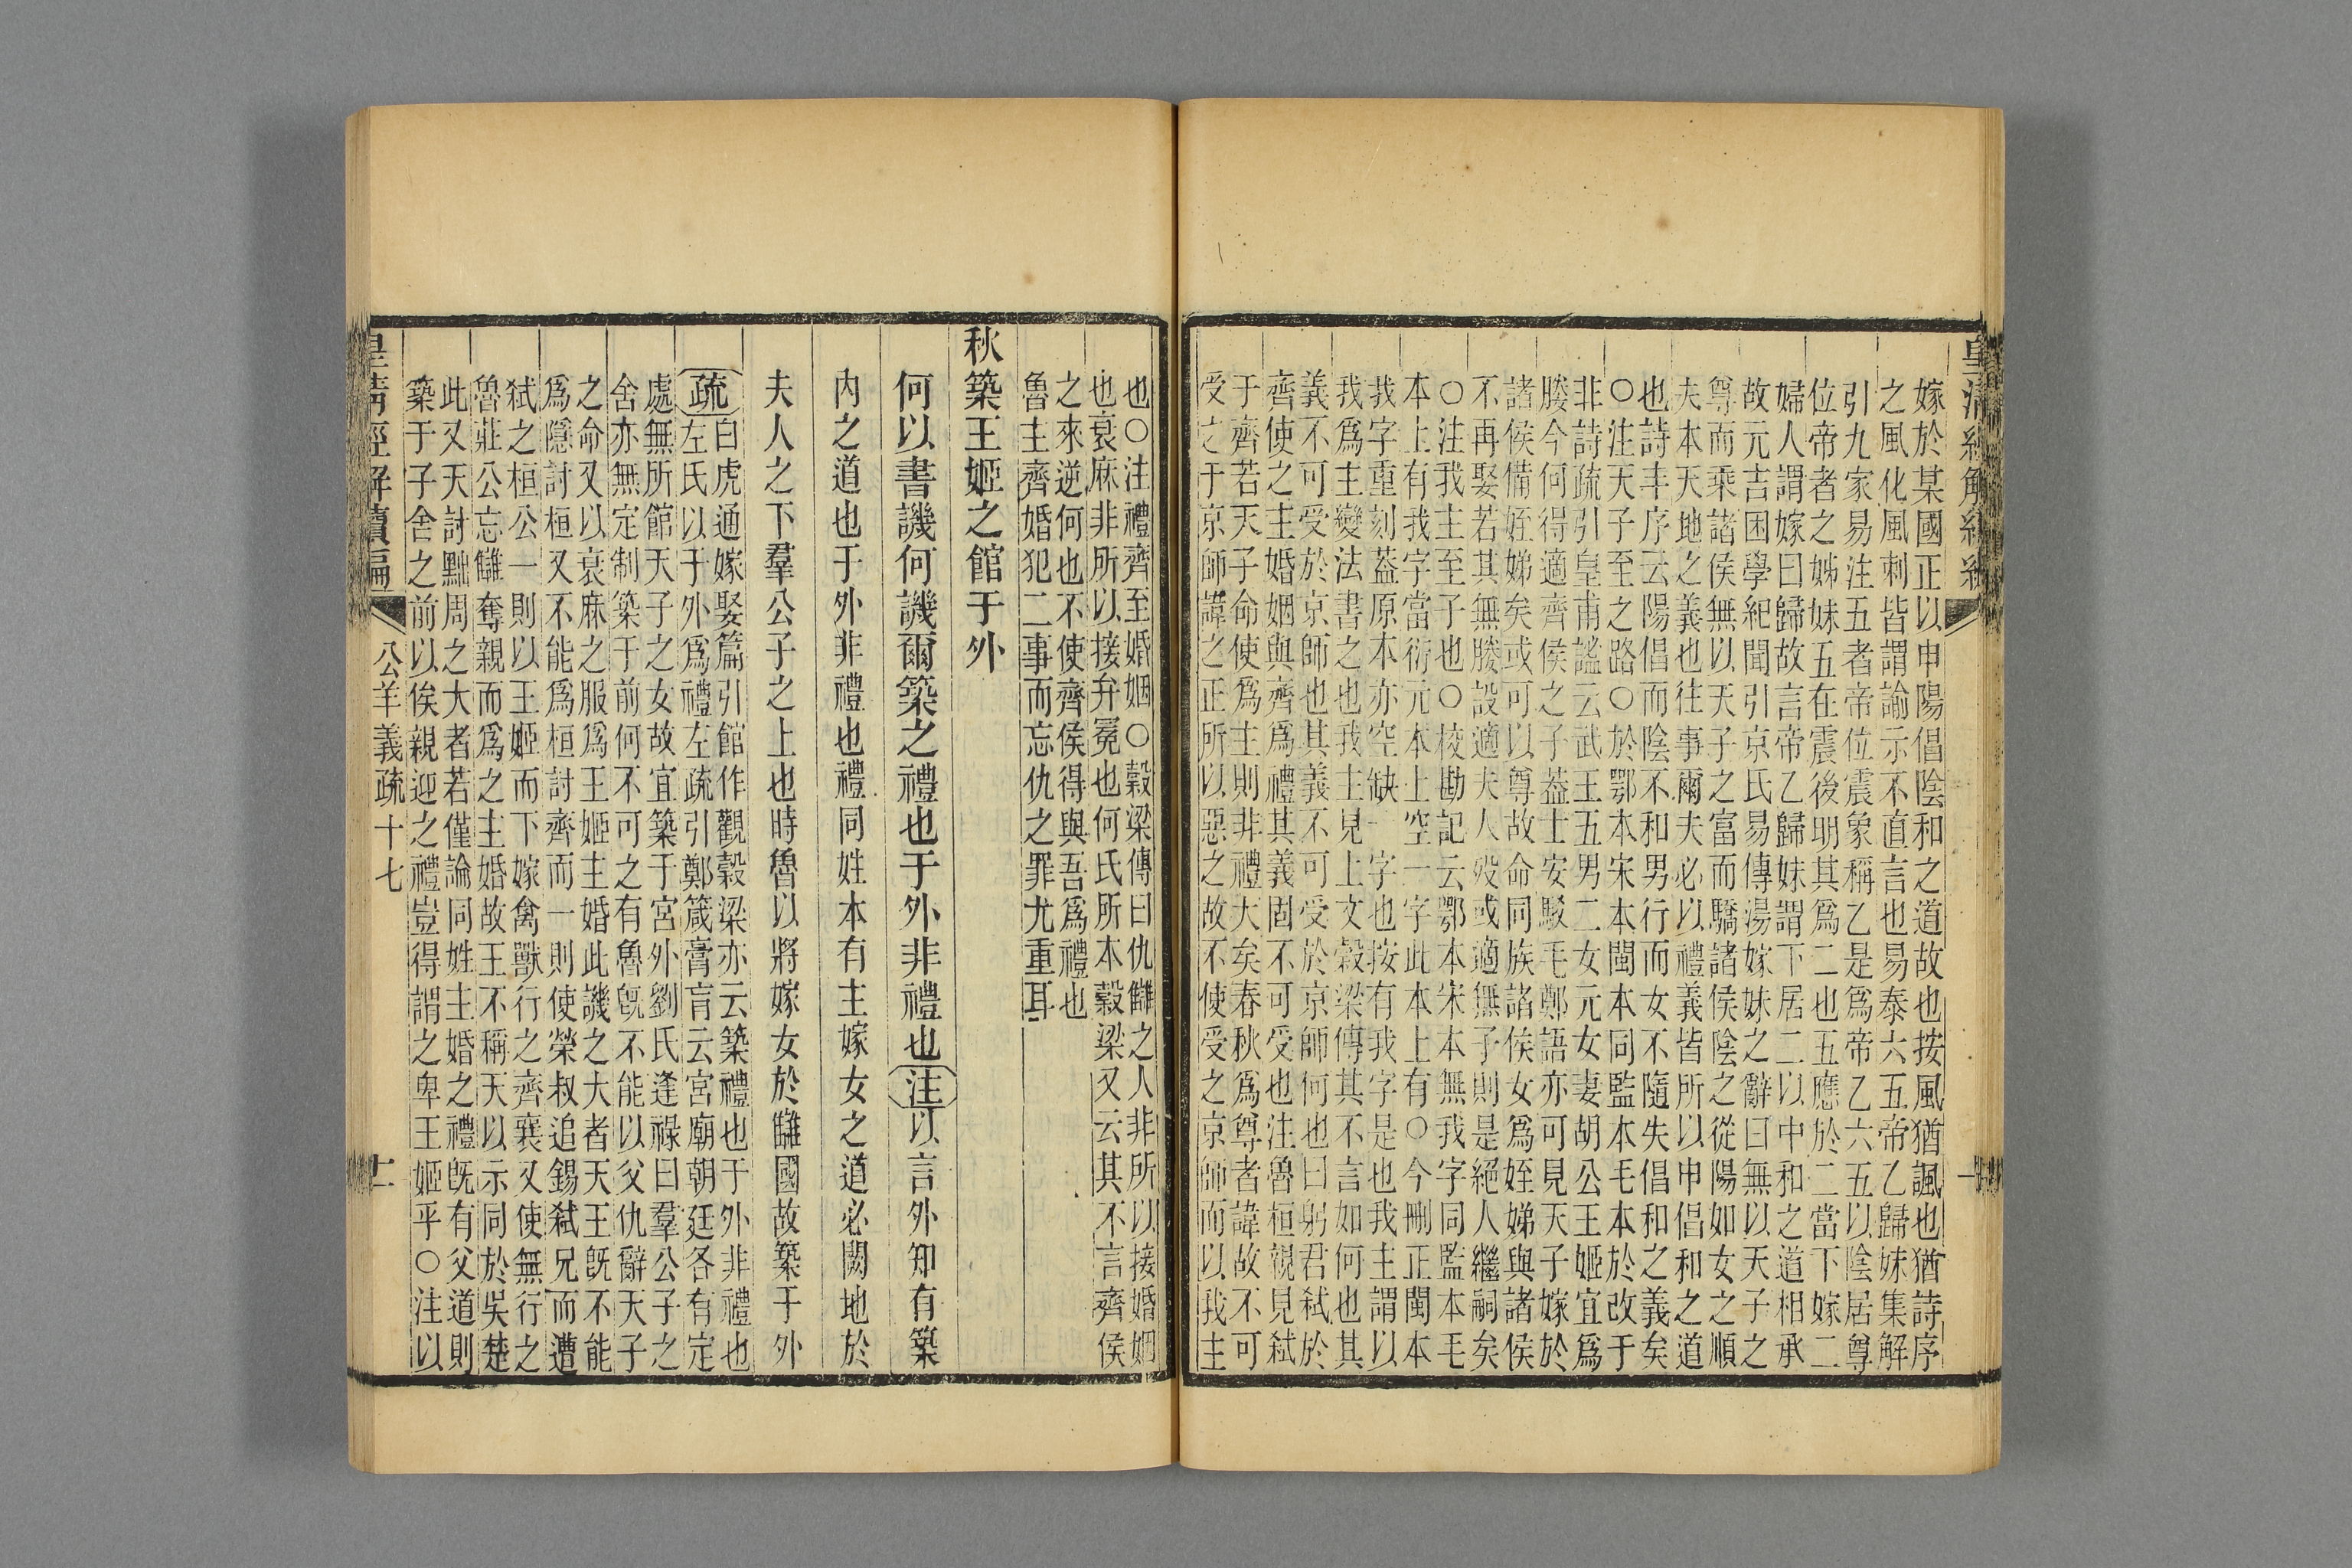 嫁於某國正以申陽倡陰和之道故也按風猶諷也猶詩序
之風化風刺皆謂諭示不直言也易泰六五帝乙歸妹集解
引九家易注五者帝位震象稱乙是爲帝乙六五以陰居尊
位帝者之姊妹五在震後明其爲二也五應於二當下嫁二
婦人謂嫁曰歸故言帝乙歸妹謂下居二以中和之道相承
故元吉困學紀聞引京氏易傳湯嫁妹之辭曰無以天子之
尊而乘諸侯無以天子之富而驕諸侯陰之從陽如女之順
夫本天地之義也往事爾夫必以禮義皆所以申倡和之道
也詩丰序云陽倡而陰不和男行而女不隨失倡和之義矣
○注天子至之路○於鄂本宋本閩本同監本毛本於改于
非詩疏引皇甫謐云武王五男二女元女妻胡公王姬宜爲
媵今何得適齊侯之子葢士安駁毛鄭語亦可見天子嫁於
諸侯備姪娣矣或可以尊故命同族諸侯女爲姪娣與諸侯
不再娶若其無媵設適夫人歿或適無子則是絕人繼嗣矣
○注我主至子也○校勘記云鄂本宋本無我字同監本毛
本上有我字當衍元本上空一字此本上有○今刪正閩本
我字重刻葢原本亦空缺一字也按有我字是也我主謂以
我爲主變法書之也我主見上文穀梁傳其不言如何也其
義不可受於京師也其義不可受於京師何也曰躬君弒於
齊使之主婚姻與齊爲禮其義固不可受也注魯桓親見弒
于齊若天子命使爲主則非禮大矣春秋爲尊者諱故不可
受之于京師諱之正所以惡之故不使受之京師而以我主
也○注禮齊至婚姻○穀梁傳曰仇讎之人非所以接婚姻
也衰麻非所以接弁冕也何氏所本穀梁又云其不言齊侯
之來逆何也不使齊侯得與吾爲禮也
魯主齊婚犯二事而忘仇之罪尤重耳
秋築王姬之館于外
何以書譏何譏爾築之禮也于外非禮也注以言外知有築
內之道也于外非禮也禮同姓本有主嫁女之道必闕地於
夫人之下羣公子之上也時魯以將嫁女於讎國故築于外
疏白虎通嫁娶篇引館作觀穀梁亦云築禮也于外非禮也
左氏以于外爲禮左疏引鄭箴膏肓云宮廟朝廷各有定
處無所館天子之女故宜築于宮外劉氏逢祿曰羣公子之
舍亦無定制築于前何不可之有魯旣不能以父仇辭天子
之命又以衰麻之服爲王姬主婚此譏之大者天王旣不能
爲隱討桓又不能爲桓討齊而一則使榮叔追錫弒兄而遭
弒之桓公一則以王姬而下嫁禽獸行之齊襄又使無行之
魯莊公忘讎奪親而爲之主婚故王不稱天以示同於吳楚
此又天討黜周之大者若僅論同姓主婚之禮旣有父道則
築于子舍之前以俟親迎之禮豈得謂之卑王姬乎○注以
皇淸經解續編
公羊義疏十七
十一